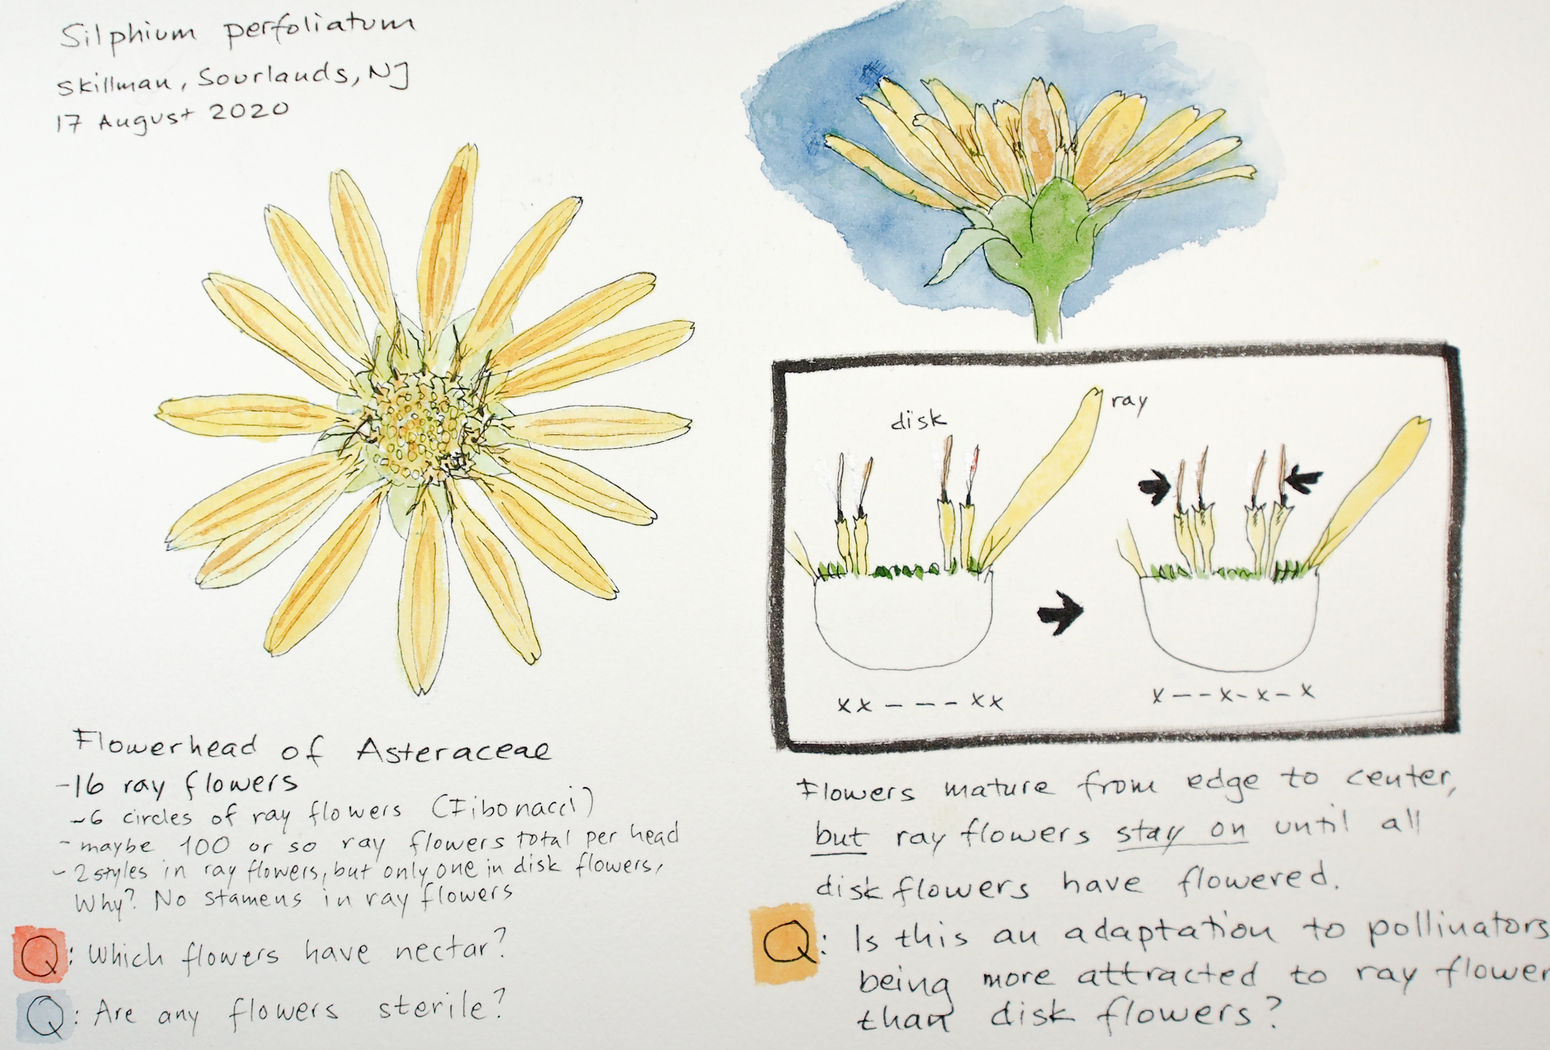 Silphium perfoliatum
Skillman, Sourlands, NJ
17 August 2020
Flowerhead of Asteraceae
-16 ray flowers
~6 circles of ray flowers (Fibonacci)
- maybe 100 or so ray flowers total per head
- 2 styles in ray flowers, but only one in disk flowers,
Why? No stamens in ray flowers
Q: Which flowers have nectar?
Q: Are any flowers sterile?
disk
ray
xx - - - - xx
x - - x - x - x
Flowers mature from edge to center,
but ray flowers stay on until all
disk flowers have flowered.
Q: Is this an adaptation to pollinators
being more attracted to ray flower
than disk flowers?